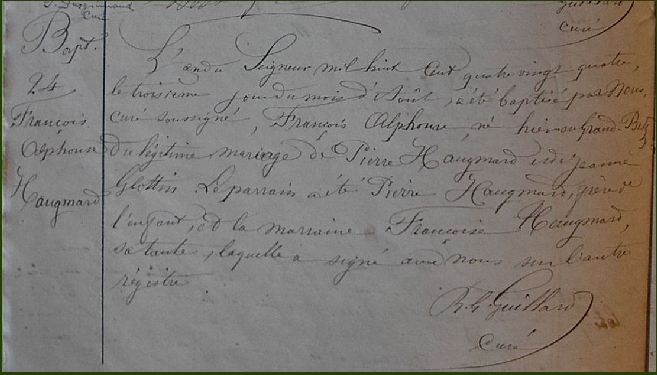 curé
Guillard
curé
Bapt.
24
François
Alphonse
Haugmard
L'an du Seigneur mil huit cent quatre vingt quatre,
le troisième jour du mois d'Août, a été baptisé par Nous,
curé soussigné, François Alphonse, né hier au Grand-Betz
du légitime mariage de Pierre Haugmard et de Jeanne
Glottin. Le parrain a été Pierre Haugmard, frère de
l'enfant, et la marraine Françoise Haugmard,
sa tante, laquelle a signé avec nous sur l'autre
régistre
Guillard
curé